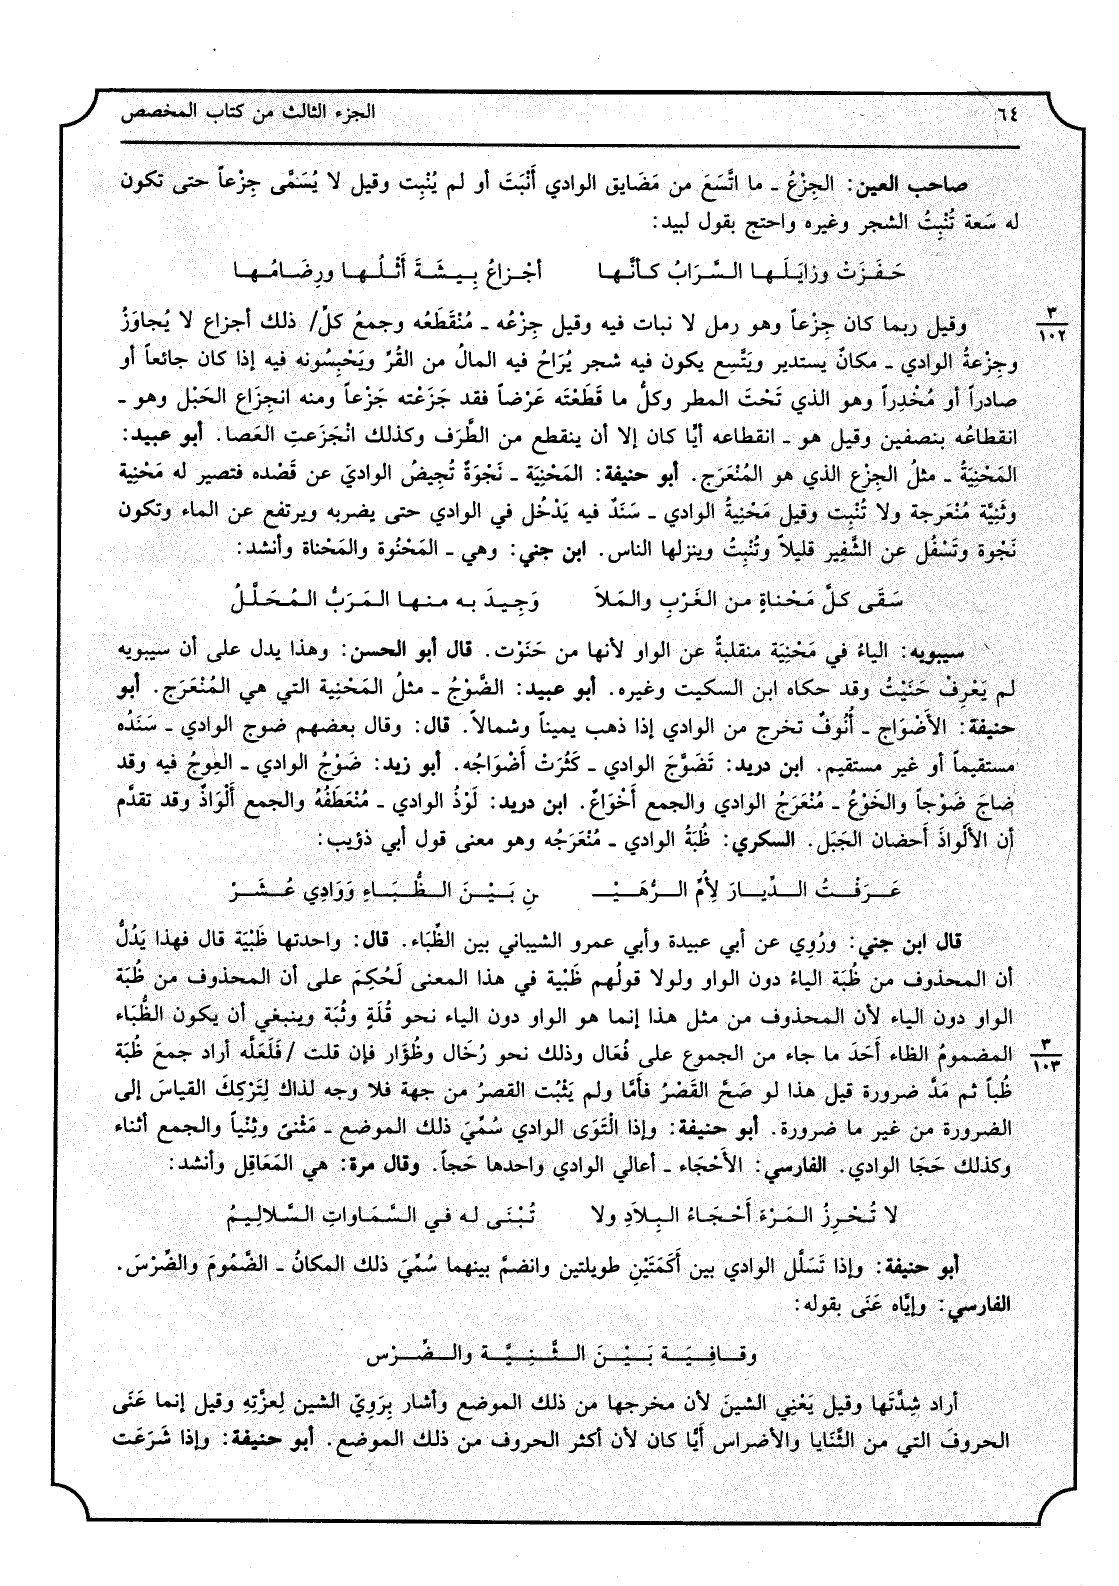 ٦٤ الجزء الثالث من كتاب المخصص
صاحب العين: الجِزْعُ ـ ما اتَّسَعَ من مَضَايق الوادي أَنْبَتَ أو لم يُنْبِت وقيل لا يُسَمَّى جِزْعاً حتى تكون
له سَعة تُنْبِتُ الشجر وغيره واحتج بقول لبيد:
حَـفَـزَتْ وزايَـلَـهـا الـسَّرَابُ كـأنَّـهـا أجْـزاعُ بِـيـشَـةَ أَثْـلُـهـا ورِضَـامُـهـا
وقيل ربما كان جِزْعاً وهو رمل لا نبات فيه وقيل جِزْعُه ـ مُنْقَطَعُه وجمعُ كلِّ/ ذلك أجزاع لا يُجاوَزُ
٣
١٠٢
وجِزْعةُ الوادي ـ مكانٌ يستدير ويَتَّسِع يكون فيه شجر يُرَاحُ فيه المالُ من القُرِّ ويَحْبِسُونه فيه إذا كان جائعاً أو
صادراً أو مُخْدِراً وهو الذي تَحْتَ المطر وكلُّ ما قَطَعْتَه عَرْضاً فقد جَزَعْته جَزْعاً ومنه انجِزَاع الحَبْل وهو ـ
انقطاعُه بنصفين وقيل هو ـ انقطاعه أيًّا كان إلا أن ينقطع من الطَّرَف وكذلك انْجَزَعتِ العَصا. أبو عبيد:
المَحْنِيَةُ ـ مثلُ الجِزْع الذي هو المُنْعَرَج. أبو حنيفة: المَحْنِيَة ـ نَجْوَةٌ تُجِيضُ الوادِيَ عن قَصْده فتصير له مَحْنِية
وثَنِيَّة مُنْعَرجة ولا تُنْبِت وقيل مَحْنِيةُ الوادي ـ سَنَدٌ فيه يَدْخُل في الوادي حتى يضربه ويرتفع عن الماء وتكون
نَجْوة وتَسْفُل عن الشَّفِير قليلاً وتُنْبِتُ وينزلها الناس. ابن جني: وهي ـ المَحْنُوة والمَحْناة وأنشد:
سَقَى كلَّ مَحْناةٍ من الغَرْبِ والمَلاَ وَجِـيـدَ بـه مـنـهـا الـمَرَبُّ الـمُحَلَّلُ
سيبويه: الياءُ في مَحْنِيَة منقلبةٌ عن الواو لأنها من حَنَوْت. قال أبو الحسن: وهذا يدل على أن سيبويه
لم يَعْرِفْ حَنَيْتُ وقد حكاه ابن السكيت وغيره. أبو عبيد: الضَّوْجُ ـ مثلُ المَحْنِية التي هي المُنْعَرَج. أبو
حنيفة: الأَضْوَاج ـ أُنُوفٌ تخرج من الوادي إذا ذهب يميناً وشمالاً. قال: وقال بعضهم ضوج الوادي ـ سَنَدُه
مستقيماً أو غير مستقيم. ابن دريد: تَضَوَّجَ الوادي ـ كَثُرَتْ أَضْوَاجُه. أبو زيد: ضَوْجُ الوادي ـ العِوجُ فيه وقد
ضاجَ ضَوْجاً والخَوْعُ ـ مُنْعَرَجُ الوادي والجمع أَخْوَاعٌ. ابن دريد: لَوْذُ الوادي ـ مُنْعَطَفُهُ والجمع أَلْوَاذٌ وقد تقدَّم
أن الأَلْوَاذَ أَحضان الجَبَل. السكري: ظُبَةُ الوادي ـ مُنْعَرَجُه وهو معنى قول أبي ذؤيب:
عَـرَفْـتُ الـدِّيـارَ لِأُمِّ الـرُّهَـيْـ ـنِ بَـيْـنَ الـظُّـبَـاءِ وَوَادِي عُـشَـرْ
قال ابن جني: ورُوِي عن أبي عبيدة وأبي عمرو الشيباني بين الظِّبَاء. قال: واحدتها ظَبْيَة قال فهذا يَدُلُّ
أن المحذوف من ظُبَة الياءُ دون الواو ولولا قولُهم ظَبْية في هذا المعنى لَحُكِمَ على أن المحذوف من ظُبَة
الواو دون الياء لأن المحذوف من مثل هذا إنما هو الواو دون الياء نحو قُلَةٍ وثُبَة وينبغي أن يكون الظُّبَاء
المضمومُ الظاء أَحَدَ ما جاء من الجموع على فُعَال وذلك نحو رُخَال وظُؤَار فإن قلت /فَلَعَلَّه أراد جمعَ ظُبَة
٣
١٠٣
ظُباً ثم مَدَّ ضرورة قيل هذا لو صَحَّ القَصْرُ فأمَّا ولم يَثْبُت القصرُ من جهة فلا وجه لذاك لِتَرْكِكَ القياسَ إلى
الضرورة من غير ما ضرورة. أبو حنيفة: وإذا الْتَوَى الوادي سُمِّيَ ذلك الموضع ـ مَثْنىً وثِنْياً والجمع أثناء
وكذلك حَجَا الوادي. الفارسي: الأَحْجَاء ـ أعالي الوادي واحدها حَجاً. وقال مرة: هي المَعَاقِل وأنشد:
لا تُـحْـرِزُ الـمَـرْءَ أَحْـجَـاءُ الـبِـلاَدِ ولا تُـبْـنَـى لـه فـي الـسَّـمَـاواتِ الـسَّـلالِـيـمُ
أبو حنيفة: وإذا تَسَلَّل الوادي بين أَكَمَتَيْنِ طويلتين وانضمَّ بينهما سُمِّيَ ذلك المكانُ ـ الضَّمُومَ والضِّرْسَ.
الفارسي: وإيَّاه عَنَى بقوله:
وقـافِـيَـة بَـيْـنَ الـثَّـنِـيَّـة والـضِّـرْس
أراد شِدَّتَها وقيل يَعْنِي الشينَ لأن مخرجها من ذلك الموضع وأشار بِرَوِيّ الشين لِعزَّتِهِ وقيل إنما عَنَى
الحروفَ التي من الثَّنَايا والأضراس أيًّا كان لأن أكثر الحروف من ذلك الموضع. أبو حنيفة: وإذا شَرَعَت